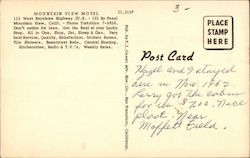 MOUNTAIN VIEW MOTEL
111 West Bayshore Highway (U.S. - 101 By Pass)
Mountain View, Calif. - Phone Yorkshire 7-9856.
Don't settle for less, Get the Best at your Lucky
Stop. All in One, Shop, Eat, Sleep & Gas. Very
best Service, Quality, Satisfaction. Modern Rooms,
Tile Showers, Beautyrest Beds, Central Heating,
Kitchenettes, Radio & T.V.'s, Weekly Rates.
3-
Post Card
PLACE
STAMP
HERE
Hazel and I stayed
here in Nov. 1962
Larry got the cabin
for us. $7.00. Nice
place. Near
Moffett Field.